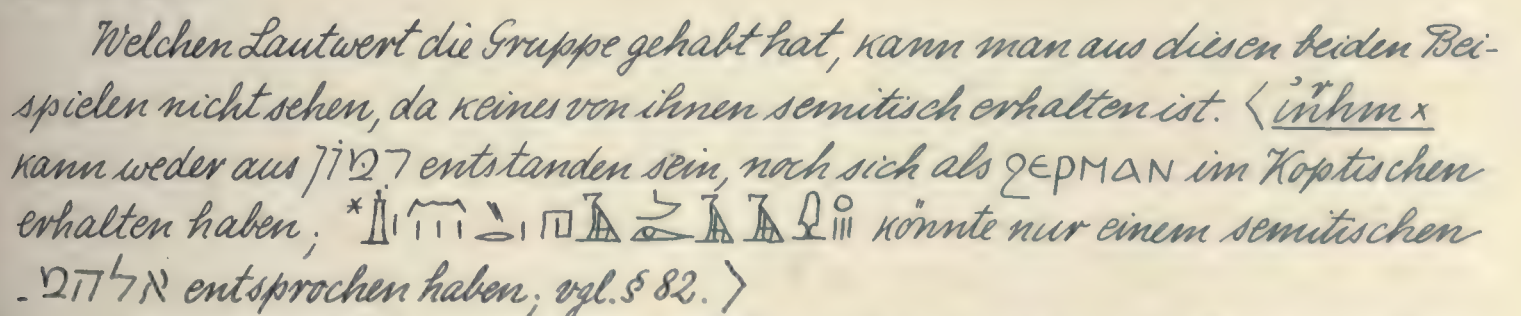 Welchen Lautwert die Gruppe gehabt hat, kann man aus diesen beiden Bei-
spielen nicht sehen, da keines von ihnen semitisch erhalten ist. ⟨ ỉnͬhm ×
kann weder aus רמון entstanden sein, noch sich als ϩⲉⲣⲙⲁⲛ im Koptischen
erhalten haben; * könnte nur einem semitischen
אלהמ- entsprochen haben; vgl. § 82. ⟩